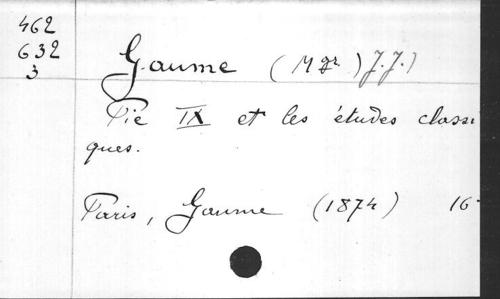 462
632
3
Gaume (Mgr) J.J.)
Pie IX et les études classi
ques.
Paris, Gaume (1874) 16°